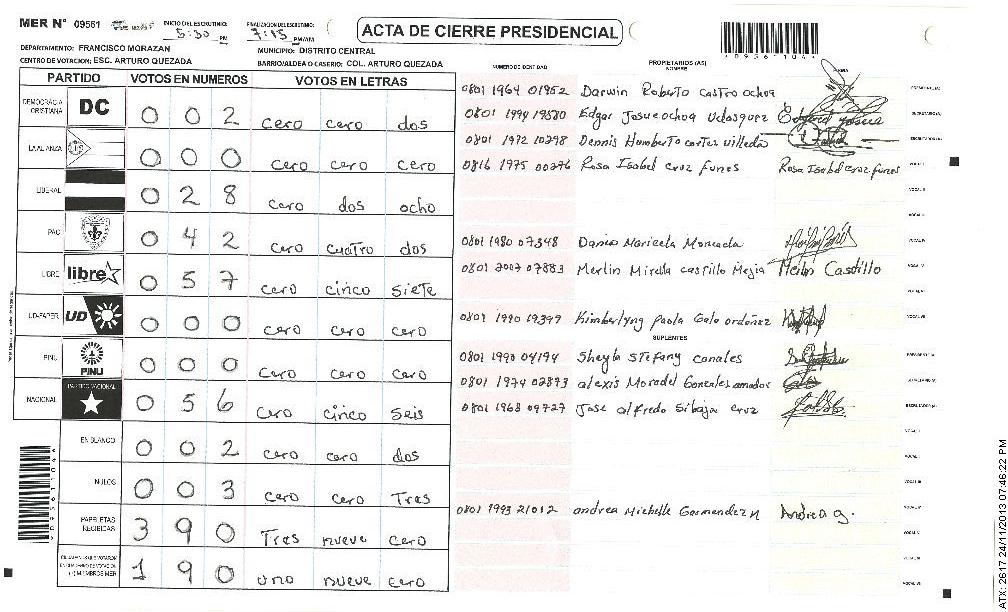 MER N° 09561
INICIO DEL ESCRUTINIO:
5:30 PM
FINALIZACION DEL ESCRUTINIO:
7:15 PM/AM
ACTA DE CIERRE PRESIDENCIAL
DEPARTAMENTO: FRANCISCO MORAZAN
MUNICIPIO: DISTRITO CENTRAL
CENTRO DE VOTACION: ESC. ARTURO QUEZADA
BARRIO/ALDEA O CASERIO: COL. ARTURO QUEZADA
PARTIDO VOTOS EN NUMEROS VOTOS EN LETRAS
DEMOCRACIA CRISTIANA DC 0 0 2 cero cero dos
LA ALIANZA 0 0 0 cero cero cero
LIBERAL 0 2 8 cero dos ocho
PAC 0 4 2 cero cuatro dos
LIBRE libre 0 5 7 cero cinco siete
UD-FAPER UD 0 0 0 cero cero cero
PINU PINU 0 0 0 cero cero cero
NACIONAL PARTIDO NACIONAL 0 5 6 cero cinco seis
EN BLANCO 0 0 2 cero cero dos
NULOS 0 0 3 cero cero Tres
PAPELETAS RECIBIDAS 3 9 0 Tres nueve cero
1 9 0 uno nueve cero
NUMERO DE IDENTIDAD
PROPIETARIOS (AS)
NOMBRE
FIRMA
0801 1964 01952 Darwin Roberto castro ochoa
0801 1994 19580 Edgar Josue ochoa Velasquez
0801 1972 10298 Dennis Humberto cortes villeda
0816 1975 00276 Rosa Isabel cruz funes Rosa Isabel cruz funes
0801 1980 07348 Dania Maricela Moncada
0801 2007 07883 Merlin Mirella castillo Mejia Merlin Castillo
0801 1990 19399 Kimberlyng paola Galo ordoñez
SUPLENTES
0801 1990 04194 Sheyla stefany canales
0801 1974 02873 alexis Moradel Gonzales amador
0801 1968 09727 Jose alfredo Sibaja cruz
0801 1993 21012 andrea Michelle Garmendez Andrea g.
ATX: 2617 24/11/2013 07:46:22 PM